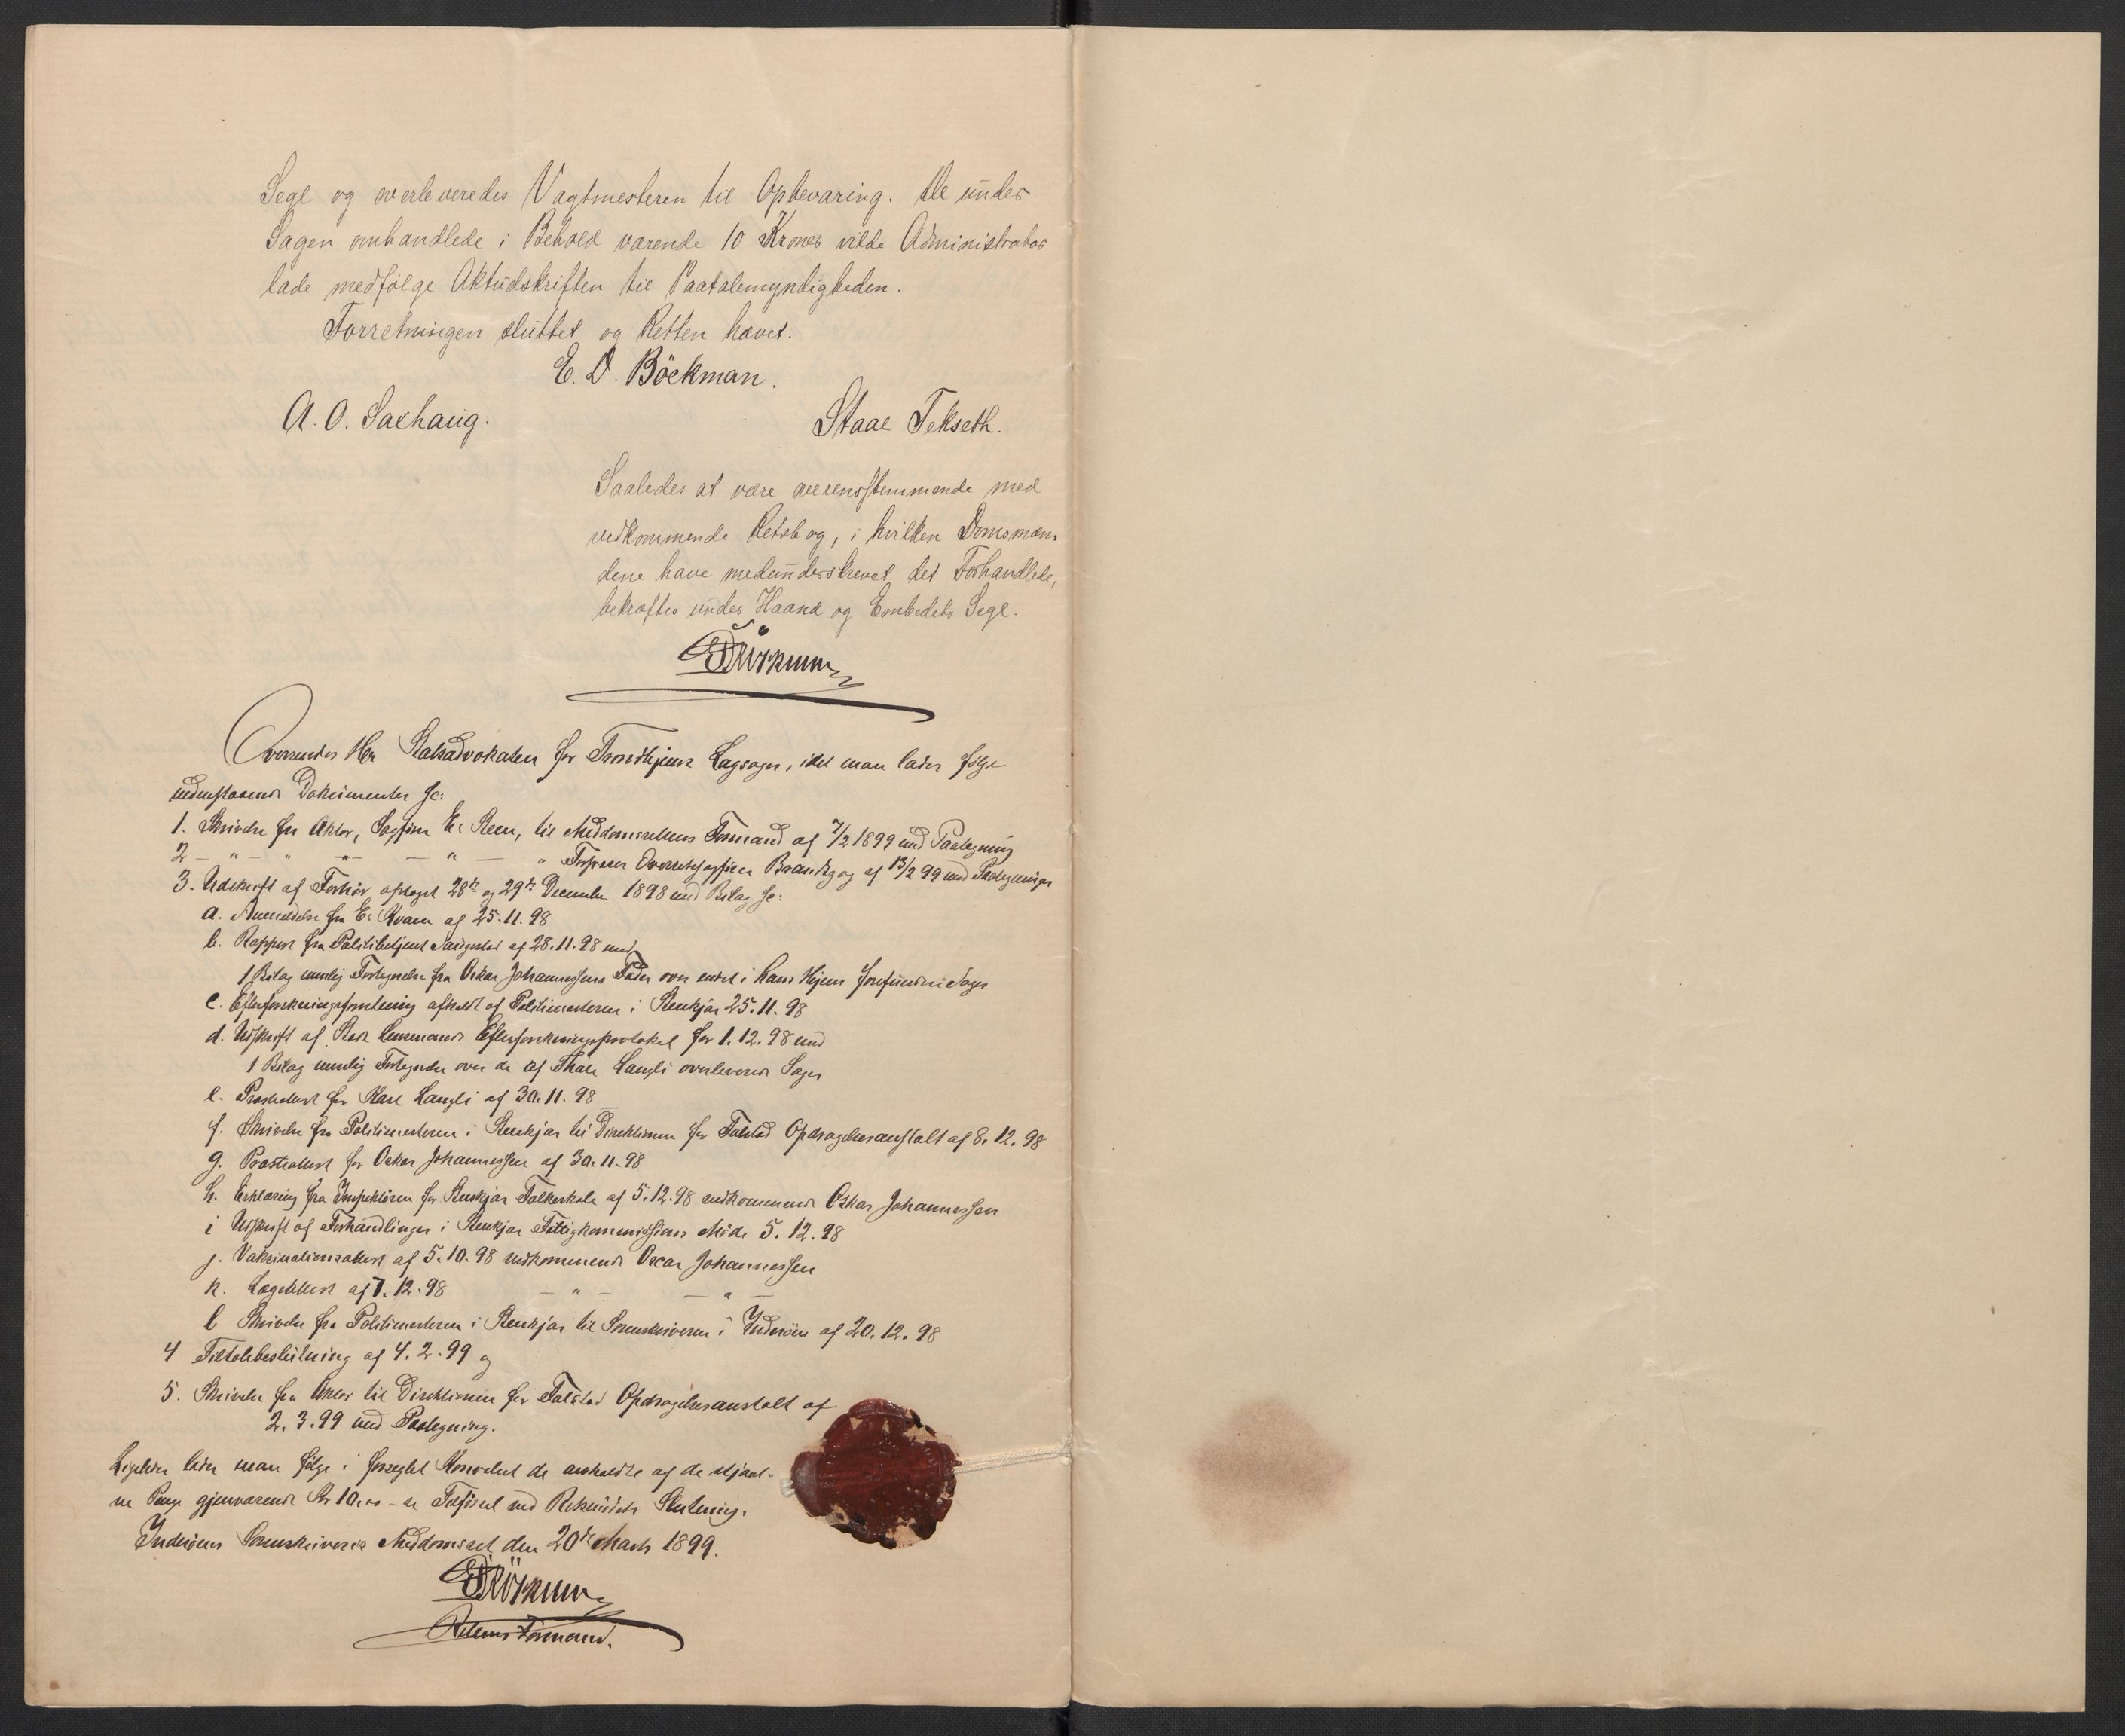 Segl og overleveredes Vagtmesteren til Opbevaring. De under
Sagen omhandlede i Behold værende 10 Kroner vilde Administrator
lade medfølge Aktudskriften til Paatalemyndigheden.
Forretningen sluttet og Retten hævet.
E. D. Böckman.
A. O. Saxhaug.
Staal Tekseth.
Saaledes at være overensstemmende med
vedkommende Retsbog, i hvilken Domsmæn-
dene have medunderskrevet det Forhandlede,
bekræftes under Haand og Embedets Segl.
Oversendes Hr. Statsadvokaten for Trondhjems Lagsogn, idet man lader følge
nedenstaaende Dokumenter sc:
1. Skrivelse fra Aktor, Sagfører E. Steen, til Meddomsrettens Formand af 7/2 1899 med Paategning
2 — " — " — " — " — " Forsvarer Overretssagfører Brandtzæg af 13/2 99 med Paategninger
3. Udskrift af Forhør optaget 28de og 29de December 1898 med Bilag sc:
a. Anmeldelse fra E. Kvam af 25.11.98
b. Rapport fra Politibetjent af 28.11.98 med
1 Bilag nemlig Fortegnelse fra Oskar Johannessens Fader over endel i hans Hjem forefundne Sager
c. Efterforskningsforretning afholdt af Politimesteren i Stenkjær 25.11.98
d. Udskrift af Stod Lensmands Efterforskningsprotokol for 1.12.98 med
1 Bilag nemlig Fortegnelse over de af Thale Langli overleverede Sager
e. Præsteattest for Karl Langli af 30.11.98
f. Skrivelse fra Politimesteren i Stenkjær til Direktionen for Falstad Opdragelsesanstalt af 8.12.98
g. Præsteattest for Oskar Johannessen af 30.11.98
h. Erklæring fra Inspektøren for Stenkjær Folkeskole af 5.12.98 vedkommende Oskar Johannessen
i Udskrift af Forhandlinger i Stenkjær Fattigkommissions Møde 5.12.98
j. Vaksinationsattest af 5.10.98 vedkommende Oscar Johannessen
k. Lægeattest af 7.12.98 — " — — " —
l Skrivelse fra Politimesteren i Stenkjær til Sorenskriveren i Inderøen af 20.12.98
4 Tiltalebeslutning af 4.2.99 og
5. Skrivelse fra Aktor til Direktionen for Falstad Opdragelsesanstalt af
2.3.99 med Paategning.
Ligeledes lader man følge i forseglet Konvolut de anholdte af de stjaal-
ne Penge gjenværende Kr 10,00 – se Tilførsel ved Retsmødets Slutning.
Inderøens Sorenskriveris Meddomsret den 20de Marts 1899.
Rettens Formand.